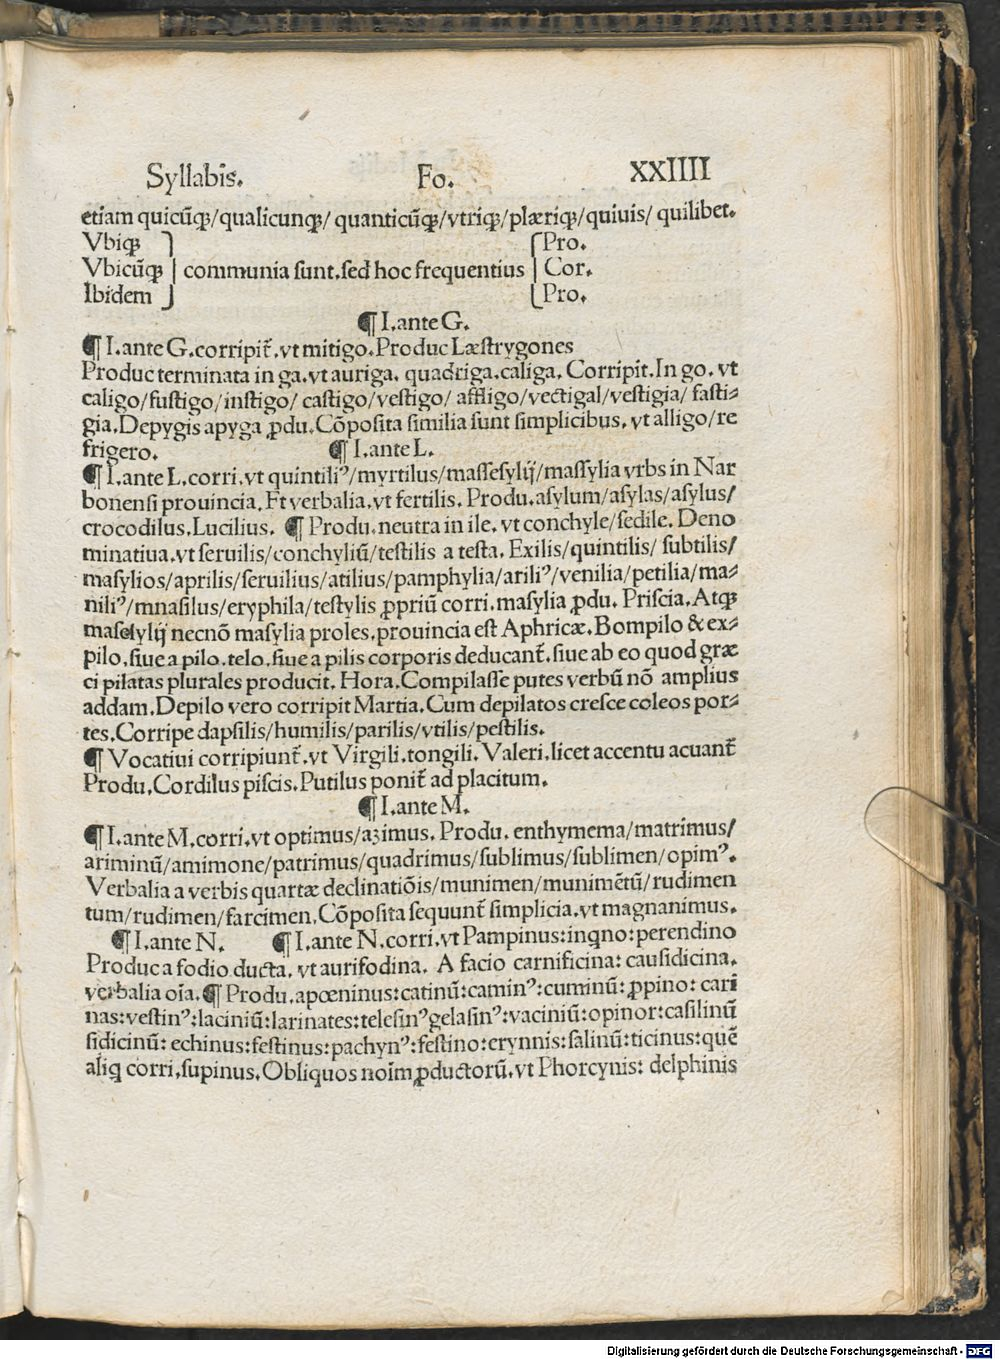 Syllabis. Fo. XXIIII
etiam quicũqꝫ/qualicunqꝫ/ quanticũqꝫ/vtriqꝫ/plæriqꝫ/quiuis/ quilibet.
Vbiqꝫ Pro.
Vbicũqꝫ communia sunt.sed hoc frequentius Cor.
Ibidem Pro.
¶ I.ante G.
¶ I.ante G.corripit̃.vt mitigo.Produc Læstrygones
Produc terminata in ga.vt auriga. quadriga.caliga. Corripit.In go. vt
caligo/fustigo/instigo/ castigo/vestigo/ affligo/vectigal/vestigia/ fasti⸗
gia.Depygis apyga ꝓdu.Cõposita similia sunt simplicibus. vt alligo/re
frigero. ¶ I.ante L.
¶ I.ante L.corri.vt quintiliꝰ/myrtilus/massesylij/massylia vrbs in Nar
bonensi prouincia. Et verbalia.vt fertilis. Produ.asylum/asylas/asylus/
crocodilus.Lucilius. ¶ Produ.neutra in ile. vt conchyle/sedile. Deno
minatiua.vt seruilis/conchyliũ/testilis a testa. Exilis/quintilis/ subtilis/
masylios/aprilis/seruilius/atilius/pamphylia/ariliꝰ/venilia/petilia/ma⸗
niliꝰ/mnasilus/eryphila/testylis ꝓpriũ corri.masylia ꝓdu. Priscia.Atqꝫ
masesylij necnõ masylia proles.prouincia est Aphricæ.Bompilo & ex⸗
pilo.siue a pilo.telo.siue a pilis corporis deducant̃.siue ab eo quod græ
ci pilatas plurales producit. Hora.Compilasse putes verbũ nõ amplius
addam.Depilo vero corripit Martia.Cum depilatos cresce coleos por⸗
tes.Corripe dapsilis/humilis/parilis/vtilis/pestilis.
¶ Vocatiui corripiunt̃.vt Virgili.tongili. Valeri.licet accentu acuant̃
Produ.Cordilus piscis.Putilus ponit̃ ad placitum.
¶ I.ante M.
¶ I.ante M.corri.vt optimus/azimus. Produ. enthymema/matrimus/
ariminũ/amimone/patrimus/quadrimus/sublimus/sublimen/opimꝰ.
Verbalia a verbis quartæ declinatiõis/munimen/munimẽtũ/rudimen
tum/rudimen/farcimen.Cõposita sequunt̃ simplicia.vt magnanimus.
¶ I.ante N. ¶ I.ante N.corri.vt Pampinus:inqno:perendino
Produc a fodio ducta. vt aurifodina. A facio carnificina: causidicina.
verbalia oĩa.¶ Produ.apœninus:catinũ:caminꝰ:cuminũ: ꝓpino: cari
nas:vestinꝰ:laciniũ:larinates:telesinꝰgelasinꝰ:vaciniũ:opinor:casilinũ
sidicinũ: echinus:festinus:pachynꝰ:festino:erynnis:salinũ:ticinus:quẽ
aliq corri.supinus.Obliquos noĩm ꝓductorũ.vt Phorcynis: delphinis
Digitalisierung gefördert durch die Deutsche Forschungsgemeinschaft - DFG